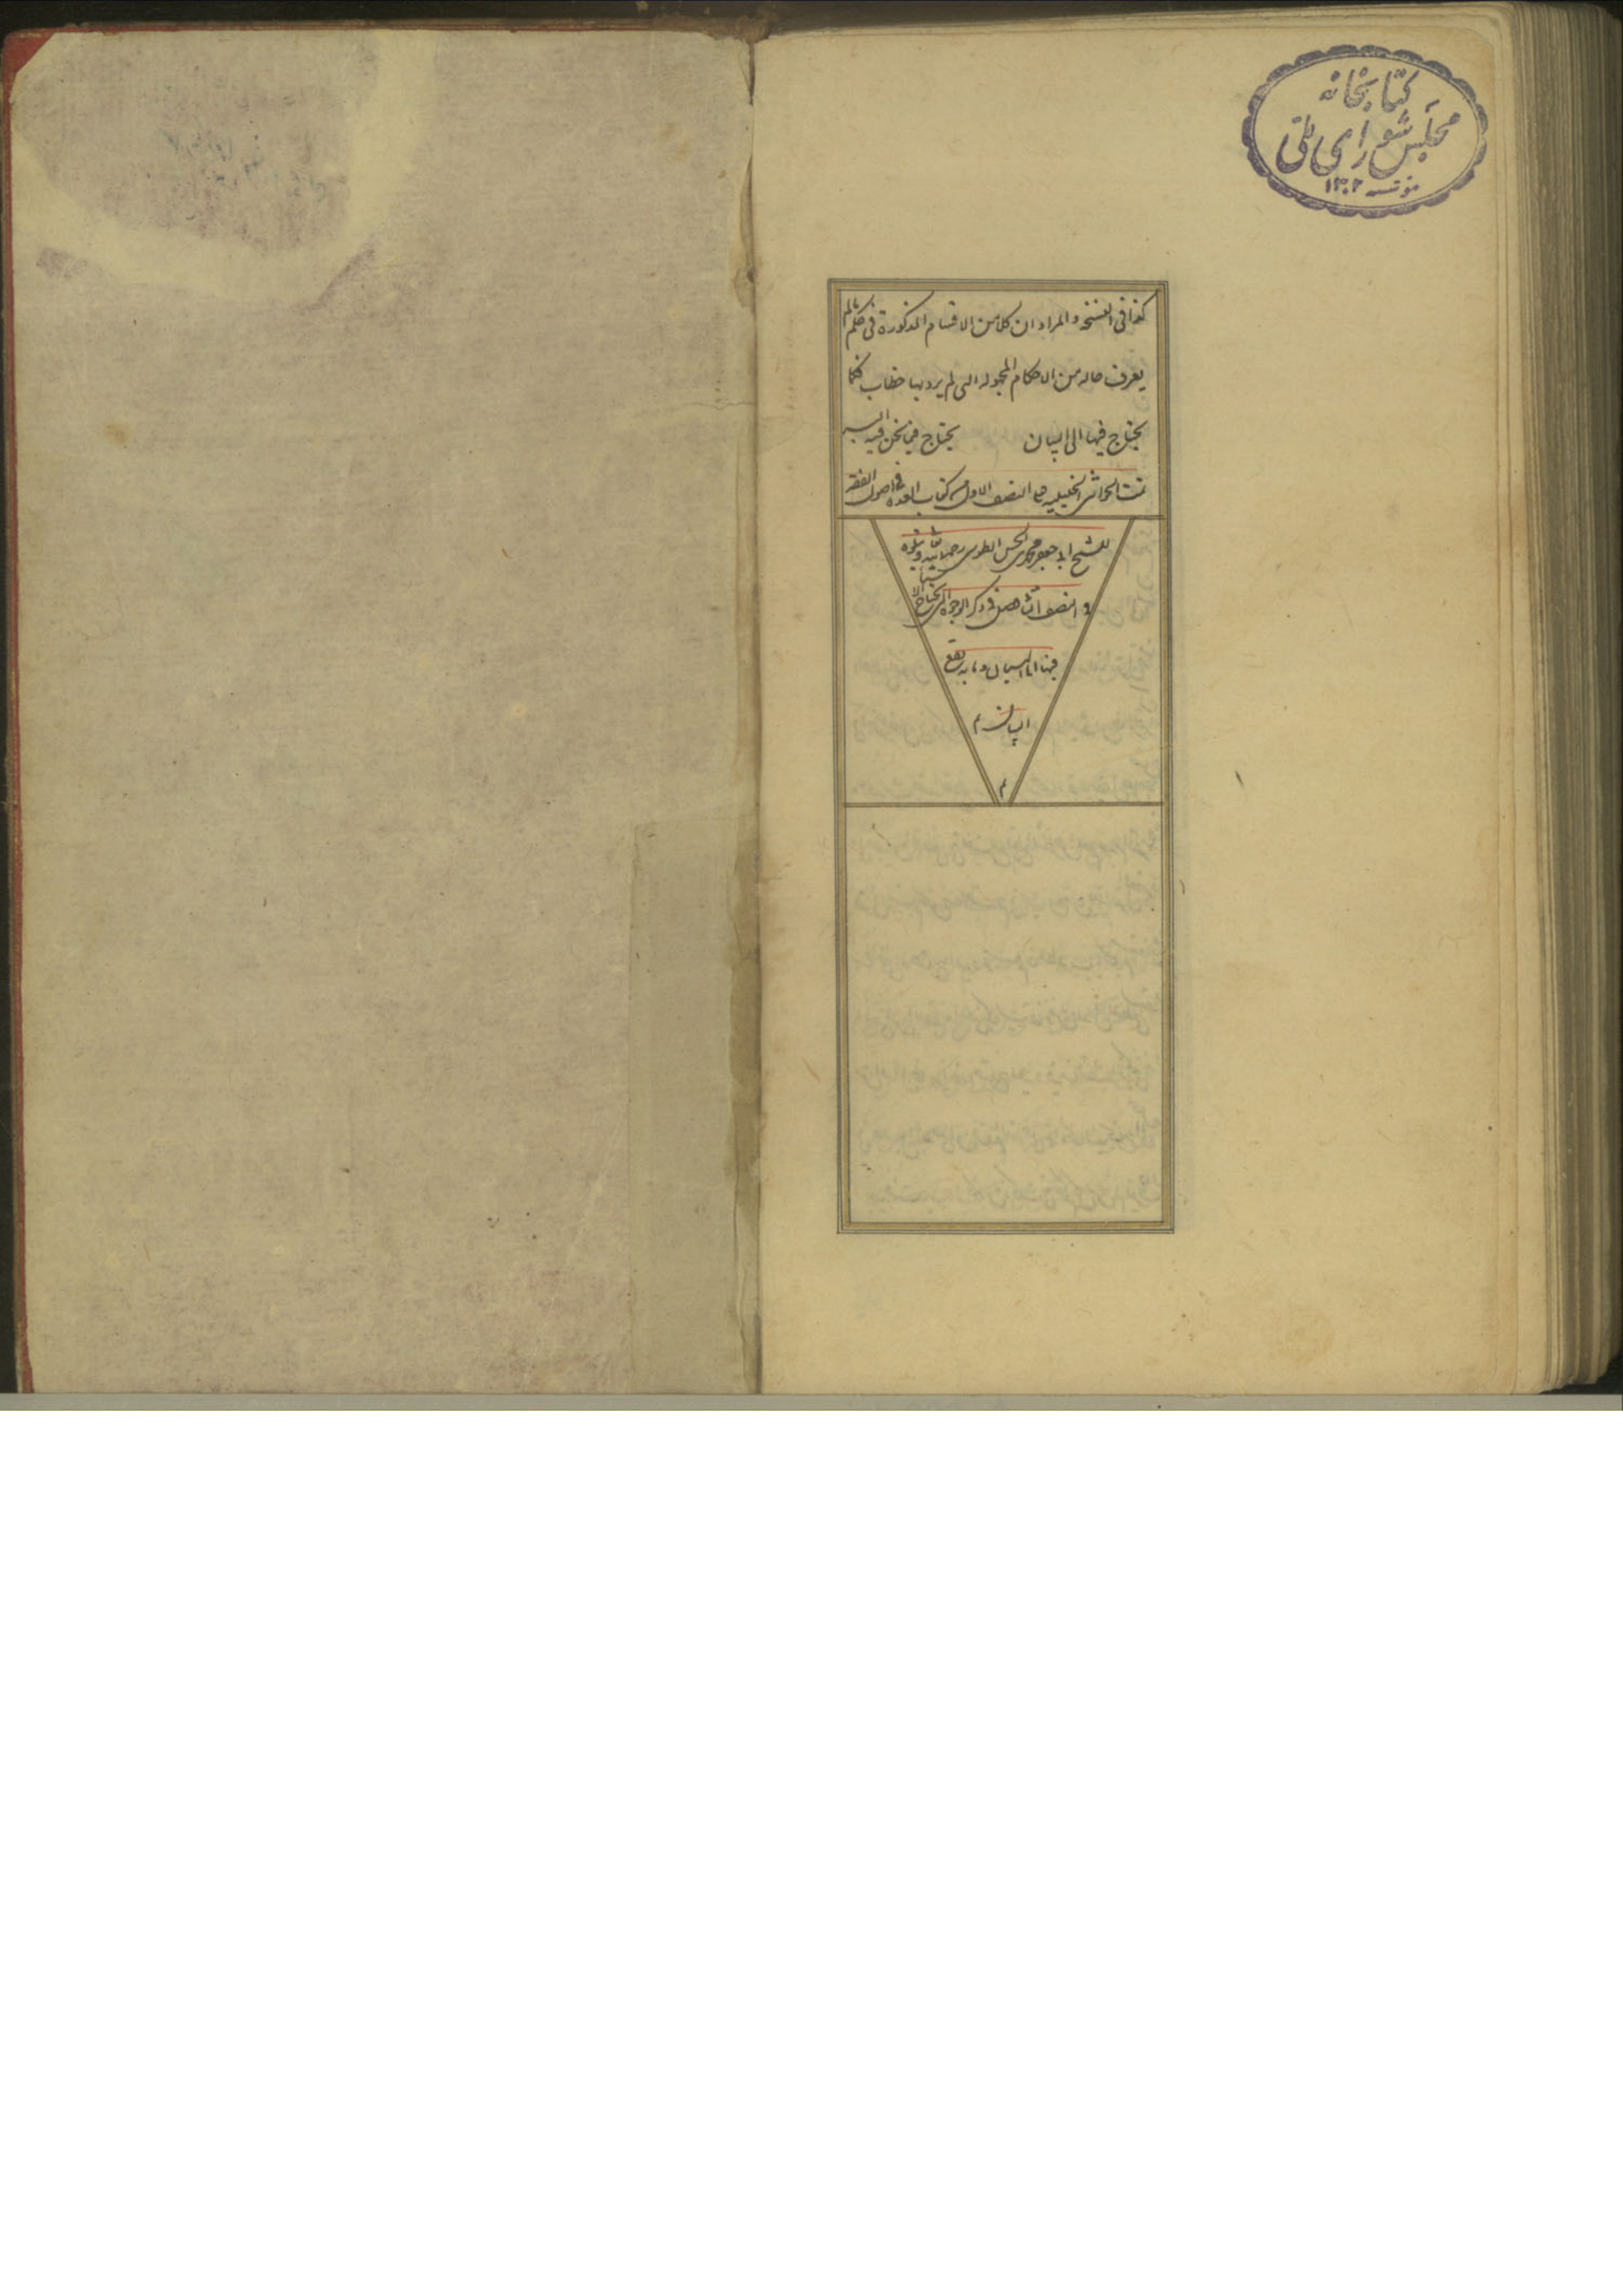 كتابخانه
مجلس شورای ملی
مؤسسه ۱۳۰۲
كذا فی النسخ والمراد ان كلا من الاقسام المذكورة فی حكم ما لم
يعرف حاله من الاحكام المجهوله التی لم يرد بها خطاب فكما
يحتاج فيها الی البيان يحتاج فيما نحن فيه اليه
تمت الحواشی الخليليه علی النصف الاول من كتاب العده فی اصول الفقه
للشيخ ابی جعفر محمد بن الحسن الطوسی رحمه الله ويتلوه
النصف فصل فی ذكر الوجوه التی يحتاج الاشياء
فيها الی البيان وما به يقع
البيان م
م